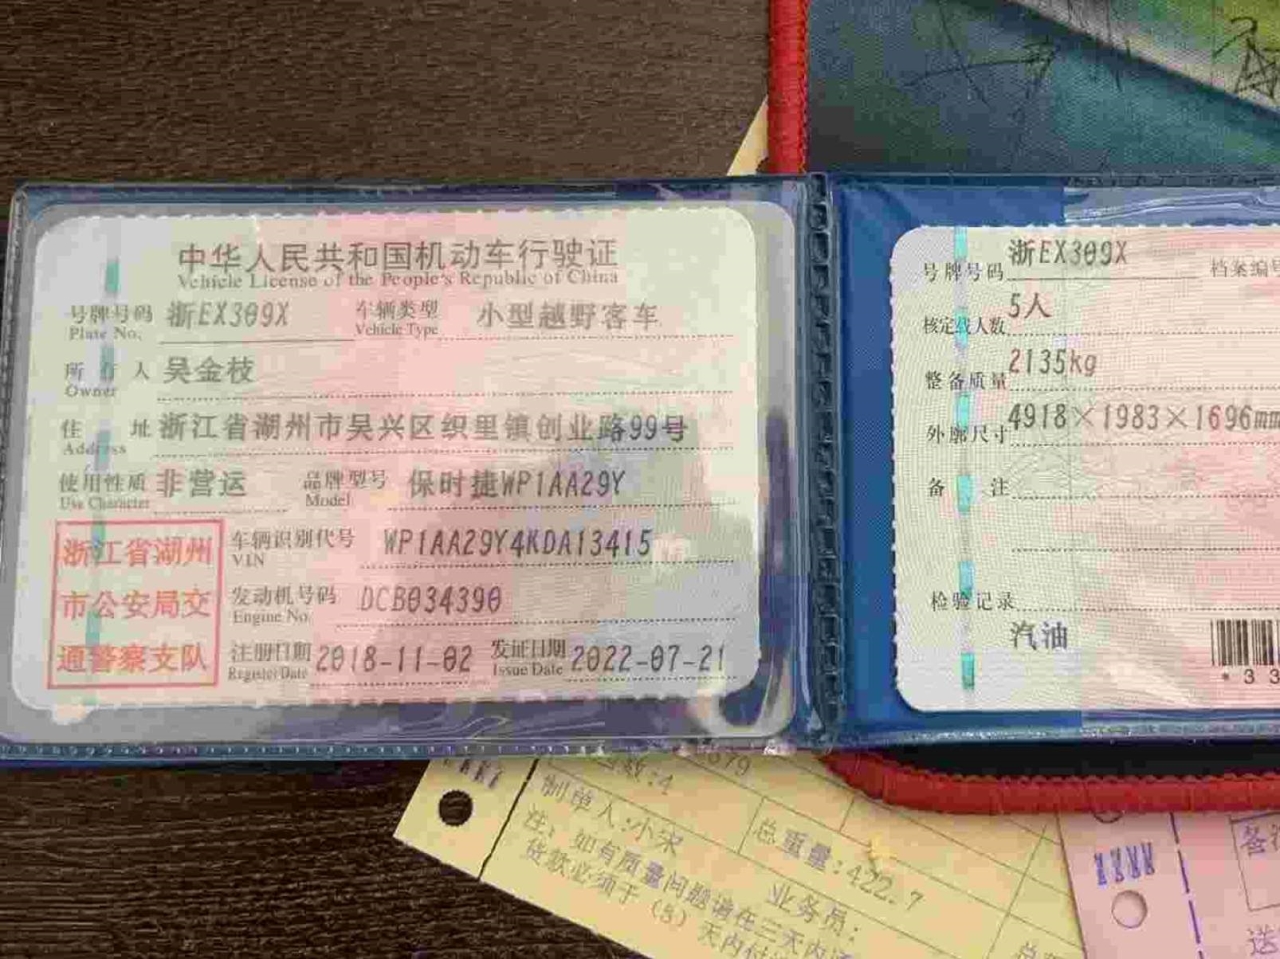 中华人民共和国机动车行驶证
Vehicle License of the People's Republic of China
号牌号码 浙EX309X 车辆类型 小型越野客车
Plate No. Vehicle Type
所有人 吴金枝
Owner
住址 浙江省湖州市吴兴区织里镇创业路99号
Address
使用性质 非营运 品牌型号 保时捷WP1AA29Y
Use Character Model
浙江省湖州
市公安局交
通警察支队
车辆识别代号 WP1AA29Y4KDA13415
VIN
发动机号码 DCB034390
Engine No.
注册日期 2018-11-02 发证日期 2022-07-21
Register Date Issue Date
号牌号码 浙EX309X 档案编号
核定载人数 5人
整备质量 2135kg
外廓尺寸 4918×1983×1696mm
备注
检验记录
汽油
*33
数:4
制单人:小宋
总重量:422.7
注:如有质量问题请在三天内
货款必须于(3)天内付
业务员: